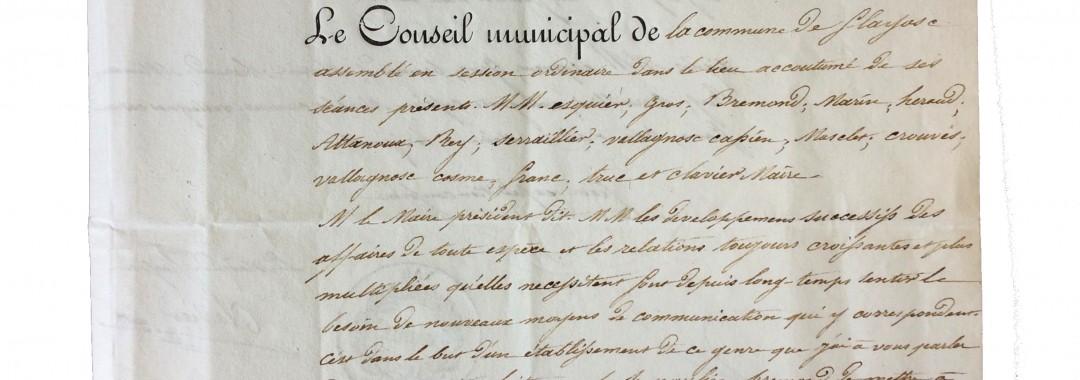 Le Conseil municipal de la commune de flayosc
assemblé en session ordinaire dans le lieu accoutumé de ses
séances présent. MM. esquier, Gros, Bremond, Marin, heraud,
Attanoux, Rey, serraillier, vallagnosc cassien, Masclet, crouvès,
vallagnosc cosme, franc, truc et clavier Maire.
Mr le Maire président dit. MM les développemens successifs des
affaires de toute espèce et les relations toujours croissantes et plus
multipliées qu'elles necessitent font depuis long-temps sentir le
besoin de nouveaux moyens de communication qui y correspondent.
c'est dans le but d'un établissement de ce genre que j'ai à vous parler